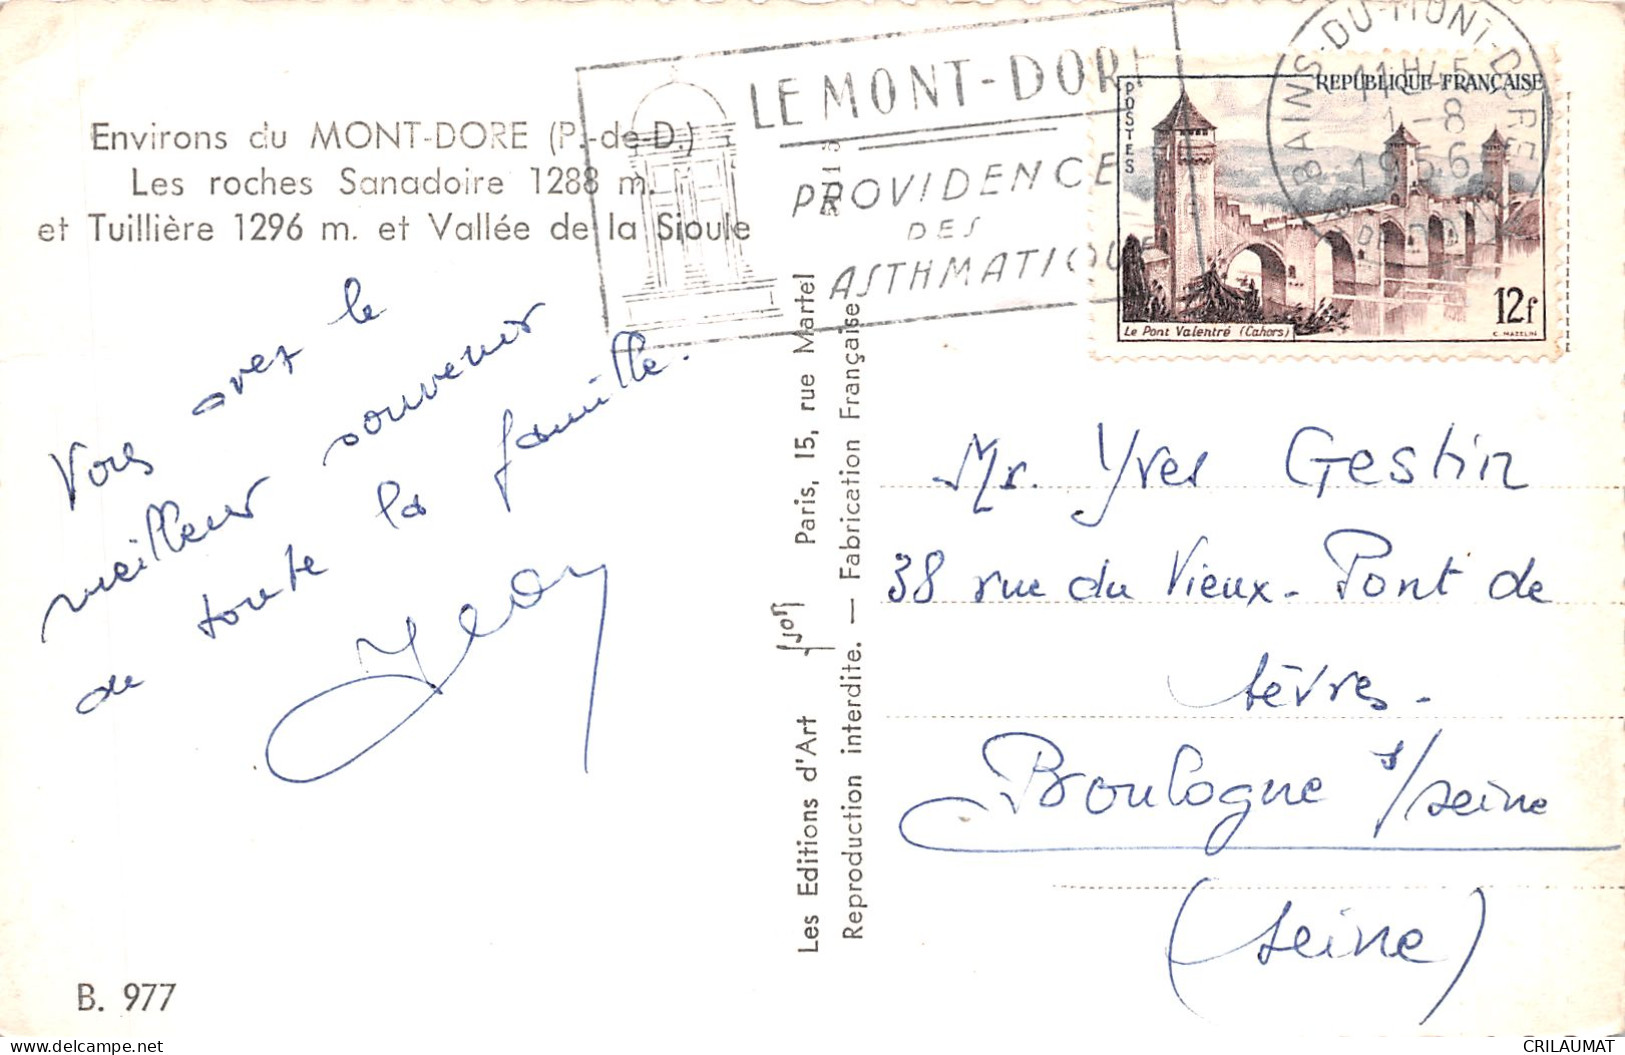 Environs du MONT-DORE (P.-de-D.)
Les roches Sanadoire 1288 m.
et Tuillière 1296 m. et Vallée de la Sioule
LE MONT-DORE
PROVIDENCE
DES
ASTHMATIQUE
BAINS-DU-MONT-DORE
11H15
1-8
1956
REPUBLIQUE-FRANÇAISE
POSTES
Le Pont Valentré (Cahors)
12f
C. MAZELIN
Vous avez le
meilleur souvenir
de toute la famille.
Les Editions d'Art Yvon Paris, 15, rue Martel
Reproduction interdite. — Fabrication Française
Mr. Yves Gestin
38 rue du Vieux-Pont de
Sèvres-
Boulogne s/seine
(Seine)
B. 977
CRILAUMAT